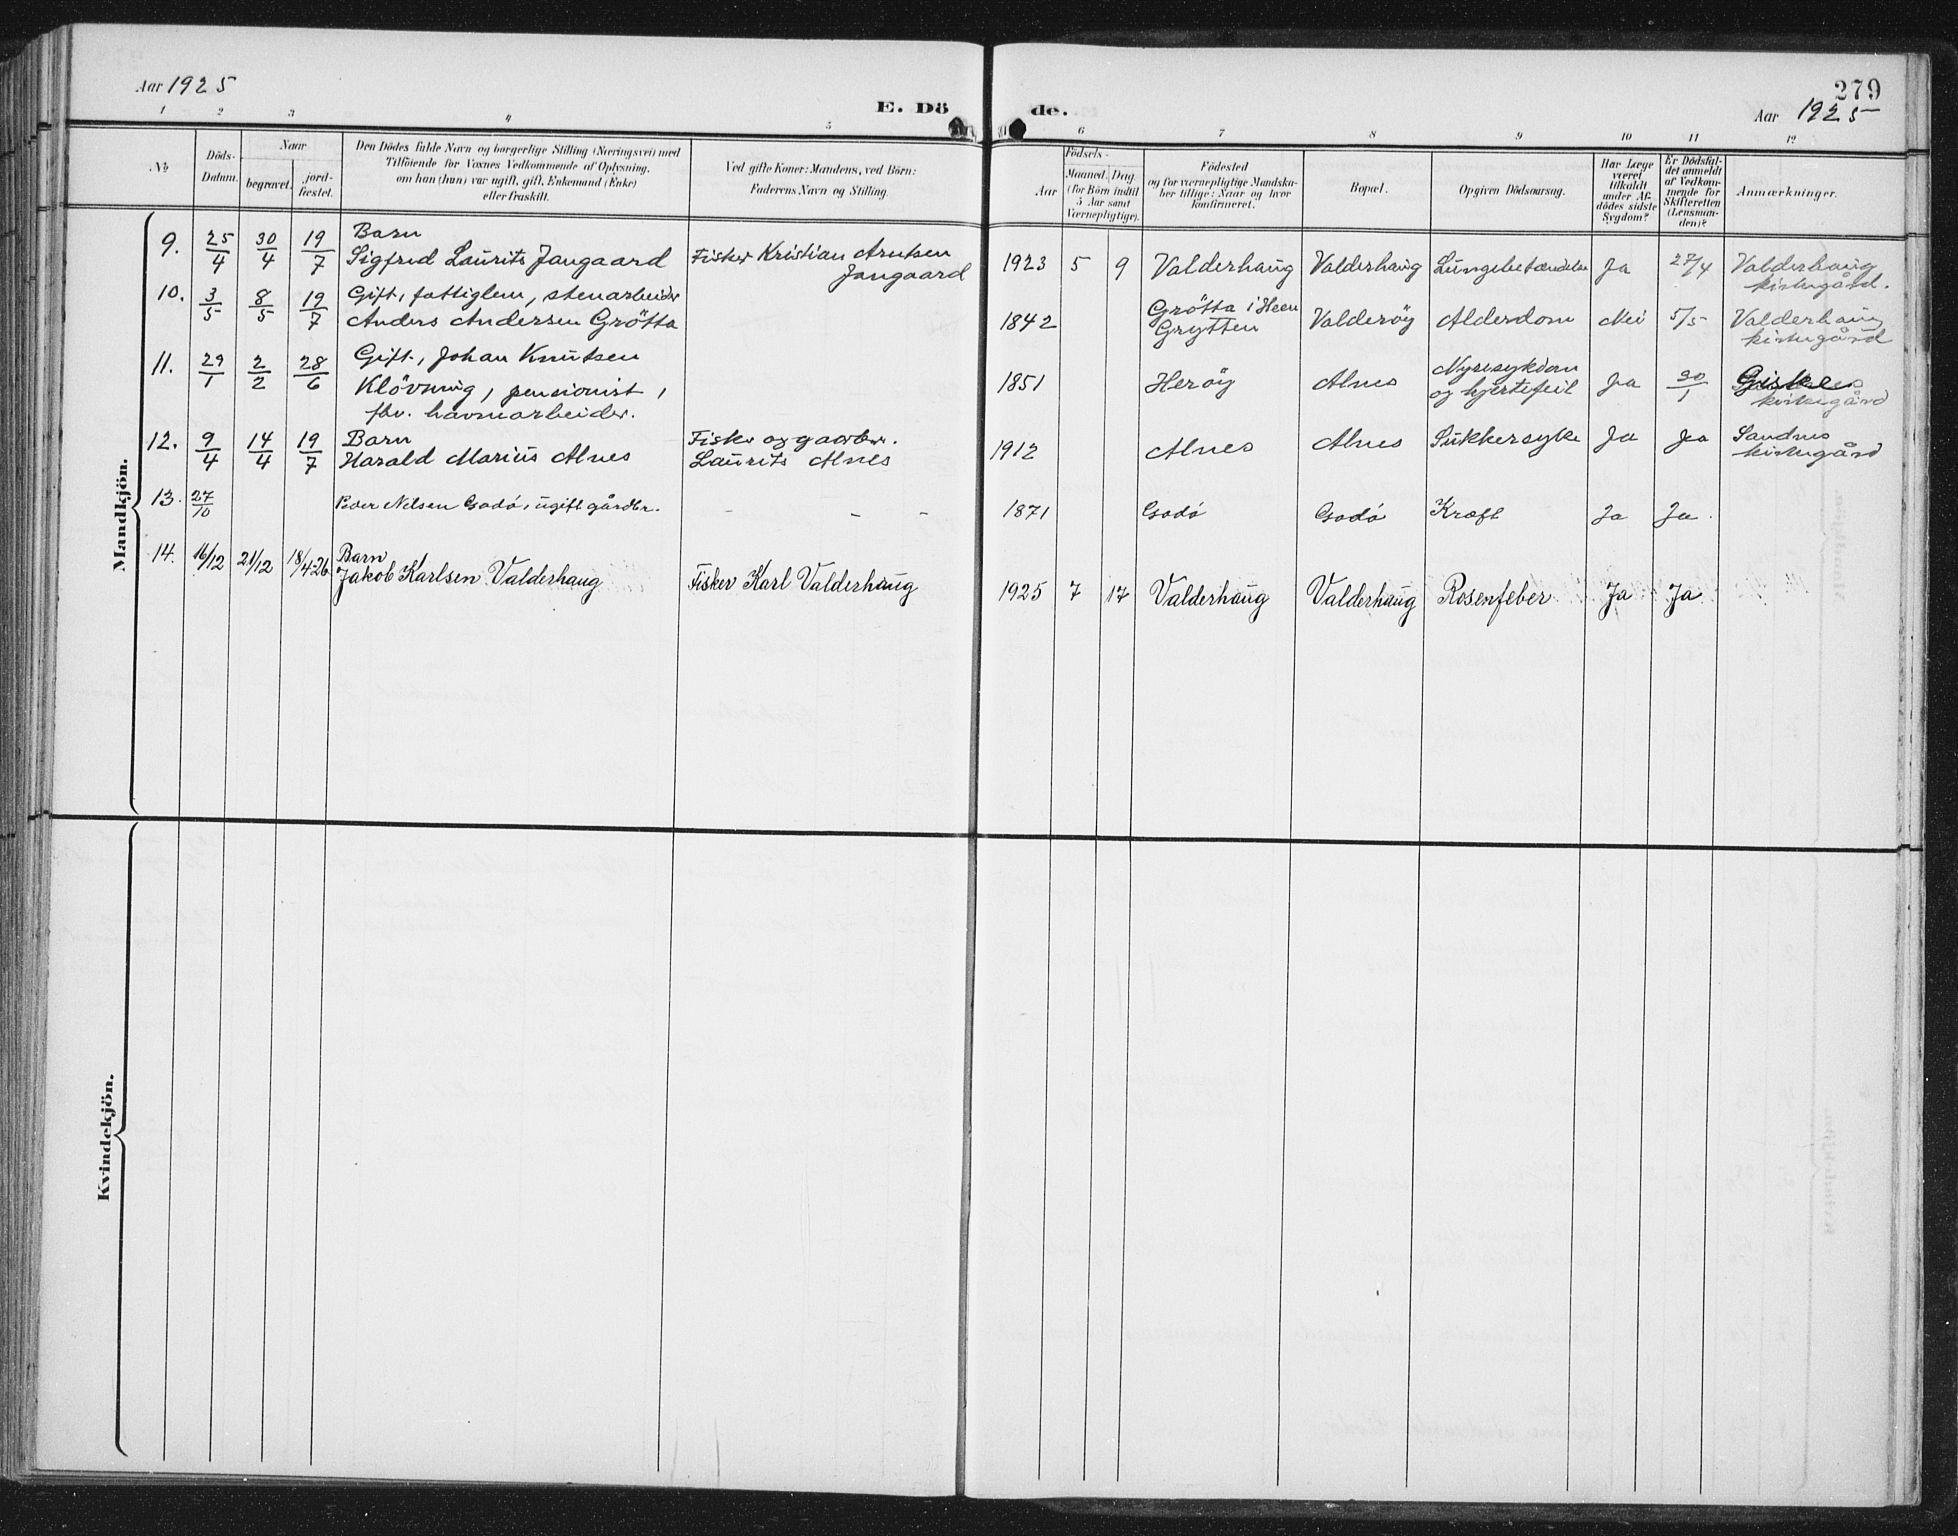 Aar 1925
E. Dö de.
279
Aar 1925
1 2 3 4 5 6 7 8 9 10 11 12
No
Döds-
Datum.
Naar
begravet.
jord-
fæstet.
Den Dödes fulde Navn og borgerlige Stilling (Næringsvei) med
Tilföiende for Voxnes Vedkommende af Oplysning,
om han (hun) var ugift, gift, Enkemand (Enke)
eller fraskilt.
Ved gifte Koner: Mandens, ved Börn:
Faderens Navn og Stilling.
Födsels-
Aar
Maaned. Dag.
(for Börn indtil
5 Aar samt
Værnepligtige).
Födested
og for værnepligtige Mandskaber
tillige: Naar og hvor
konfirmeret.
Bopæl.
Opgiven Dödsaarsag.
Har Læge
været
tilkaldt
under Afdödes
sidste
Sygdom?
Er Dödsfaldet
anmeldt
af Vedkommende
for
Skifteretten
(Lensmanden)?
Anmærkninger.
Mandkjön.
9. 25/4 30/4 19/7 Barn
Sigfred Laurits Jangaard Fisker Kristian Arntsen
Jangaard 1923 5 9 Valderhaug Valderhaug Lungebetændelse Ja 27/4 Valderhaug
kirkegård.
10. 3/5 8/5 19/7 Gift, fattiglem, stenarbeider
Anders Andersen Grötta 1842 Grötta i Heen
Grytten Valderöy Alderdom Nei 5/5 Valderhaug
kirkegård
11. 29/1 2/2 28/6 Gift, Johan Knutsen
Klövning, pensionist,
fhv. havnearbeider. 1851 Heröy Alnes Nyresykdom
og hjertefeil Ja 30/1 Giske
kirkegård
12. 9/4 14/4 19/7 Barn
Harald Marius Alnes Fisker og gaardbr.
Laurits Alnes 1912 Alnes Alnes Sukkersyke Ja Ja Sandnes
kirkegård
13. 27/10 Peder Nilsen Godø, ugift gårdbr. - - - 1871 Godø Godø Kræft Ja Ja.
14. 16/12 21/12 18/4-26 Barn
Jakob Karlsen Valderhaug Fisker Karl Valderhaug 1925 7 17 Valderhaug Valderhaug Rosenfeber Ja Ja
Kvindekjön.